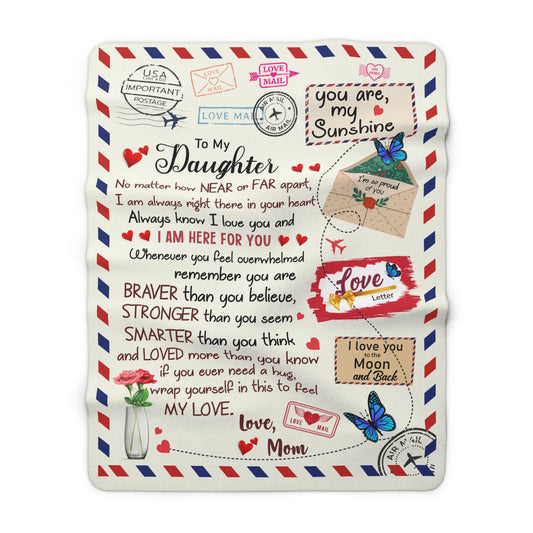 USA
CHICAGO
IMPORTANT
POSTAGE
LOVE
MAIL
LOVE
MAIL
LOVE MAIL
AIR MAIL
AIR MAIL
you are,
my
Sunshine
To My
Daughter
No matter how NEAR or FAR apart,
I am always right there in your heart
Always know I love you and
I AM HERE FOR YOU
Whenever you feel overwhelmed
remember you are
BRAVER than you believe,
STRONGER than you seem
SMARTER than you think
and LOVED more than you know
if you ever need a hug,
wrap yourself in this to feel
MY LOVE.
Love,
Mom
I'm so proud
of you
Love
Letter
I love you
to the
Moon
and Back
LOVE MAIL
AIR MAIL